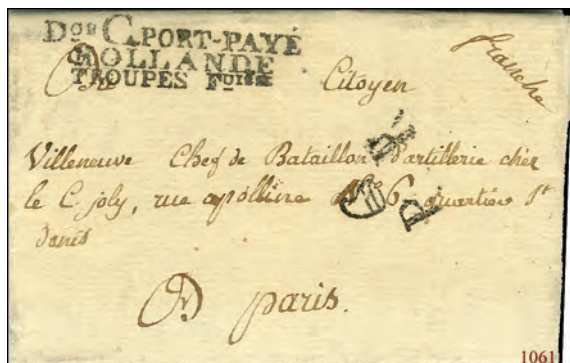 Don C PORT-PAYÉ
HOLLANDE
TROUPES Fses
franche
Au Citoyen
Villeneuve Chef de Bataillon D'artillerie chez
le C. joly, rue apolline No 6 quartier St
Danis
A paris.
P P
1061